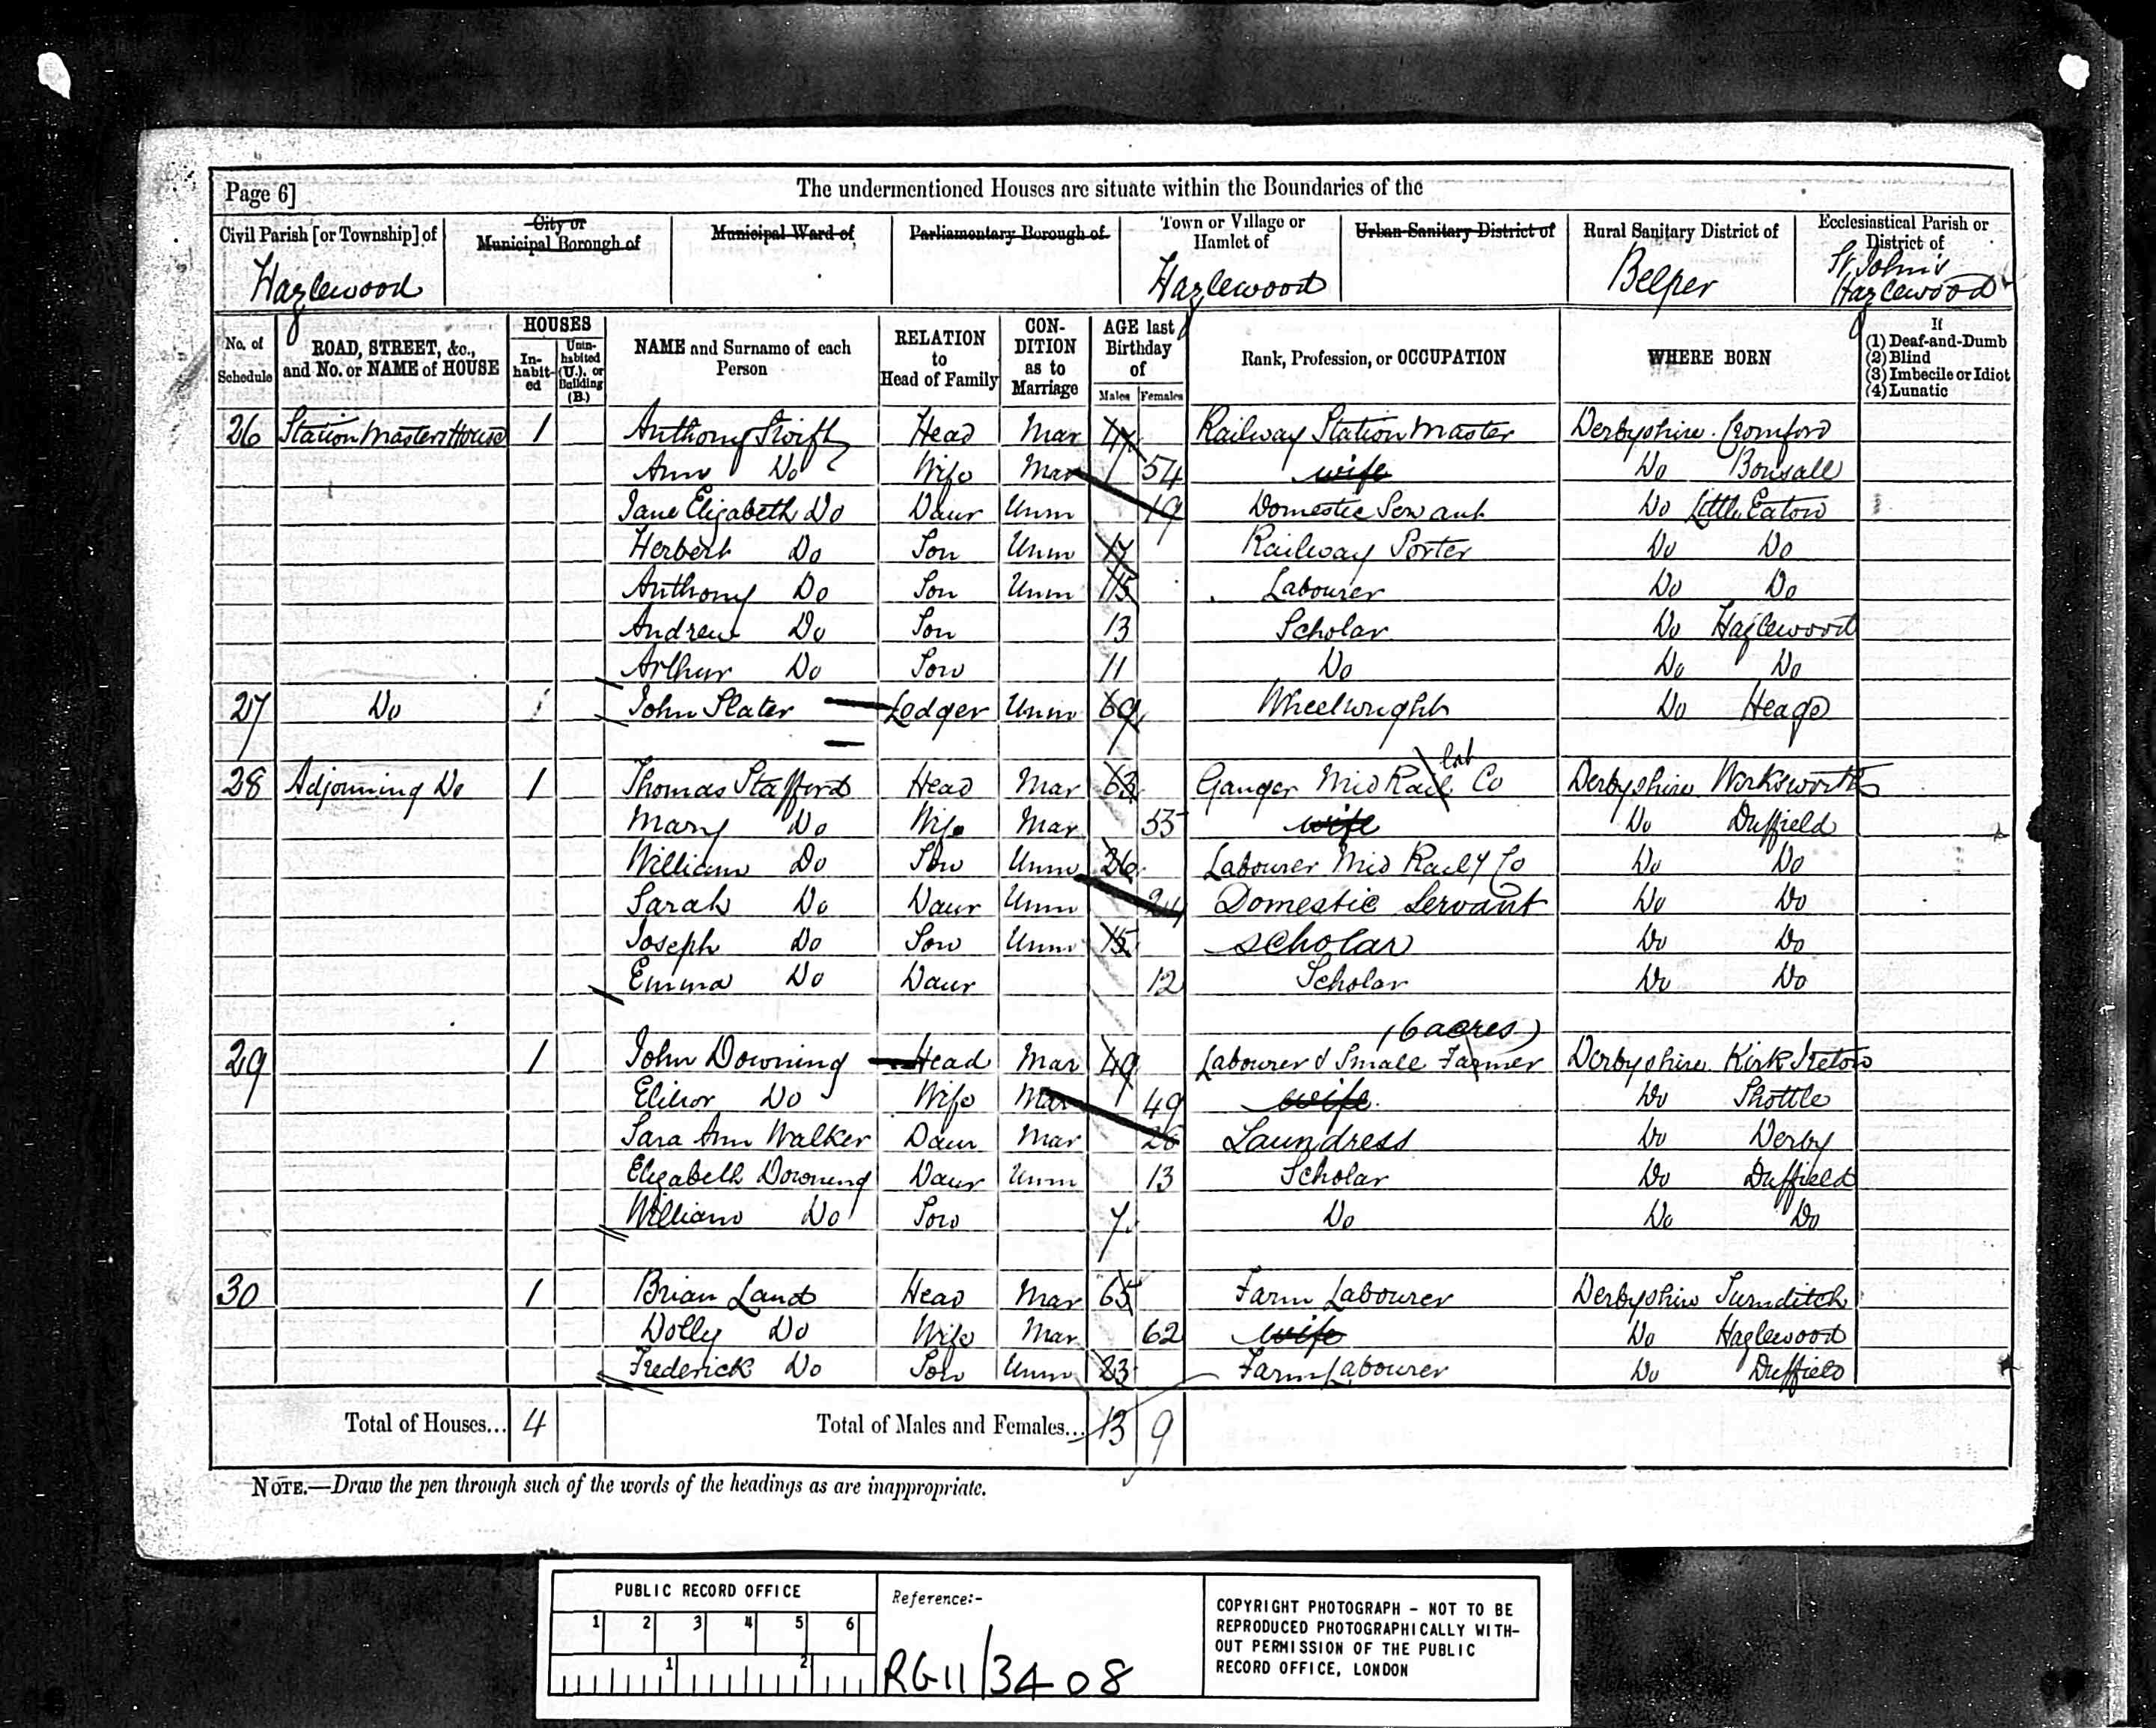 Page 6]
The undermentioned Houses are situate within the Boundaries of the
Civil Parish [or Township] of
Hazlewood
City or Municipal Borough of
Municipal Ward of
Parliamentary Borough of
Town or Village or Hamlet of
Hazlewood
Urban Sanitary District of
Rural Sanitary District of
Belper
Ecclesiastical Parish or District of
St John's Hazlewood
No. of Schedule
ROAD, STREET, &c., and No. or NAME of HOUSE
HOUSES
In-habit-ed
Unin-habited (U.), or Building (B.)
NAME and Surname of each Person
RELATION to Head of Family
CON-DITION as to Marriage
AGE last Birthday of
Males Females
Rank, Profession, or OCCUPATION
WHERE BORN
If
(1) Deaf-and-Dumb
(2) Blind
(3) Imbecile or Idiot
(4) Lunatic
26 Station Masters House 1 Anthony Swift Head Mar Railway Station Master Derbyshire Cromford
Ann Do Wife Mar 54 wife Do Bonsall
Jane Elizabeth Do Daur Unm 19 Domestic Servant Do Little Eaton
Herbert Do Son Unm 17 Railway Porter Do Do
Anthony Do Son Unm 15 Labourer Do Do
Andrew Do Son 13 Scholar Do Hazlewood
Arthur Do Son 11 Do Do Do
27 Do John Slater Lodger Unm 69 Wheelwright Do Heage
28 Adjoining Do 1 Thomas Stafford Head Mar 63 Ganger Mid Rail Lab Co Derbyshire Worksworth
Mary Do Wife Mar 55 wife Do Duffield
William Do Son Unm 26 Labourer Mid Raily Co Do Do
Sarah Do Daur Unm 24 Domestic Servant Do Do
Joseph Do Son Unm 15 Scholar Do Do
Emma Do Daur 12 Scholar Do Do
(6 acres)
29 1 John Downing Head Mar 49 Labourer & Small Farmer Derbyshire Kirk Ireton
Elinor Do Wife Mar 49 wife Do Shottle
Sara Ann Walker Daur Mar 26 Laundress Do Derby
Elizabeth Downing Daur Unm 13 Scholar Do Duffield
William Do Son 7 Do Do Do
30 1 Brian Land Head Mar 65 Farm Labourer Derbyshire Turnditch
Dolly Do Wife Mar 62 wife Do Hazlewood
Frederick Do Son Unm 23 Farm Labourer Do Duffield
Total of Houses... 4 Total of Males and Females... 13 9
NOTE.—Draw the pen through such of the words of the headings as are inappropriate.
PUBLIC RECORD OFFICE
1 2 3 4 5 6
1 2
Reference:-
RG11/3408
COPYRIGHT PHOTOGRAPH - NOT TO BE
REPRODUCED PHOTOGRAPHICALLY WITH-
OUT PERMISSION OF THE PUBLIC
RECORD OFFICE, LONDON